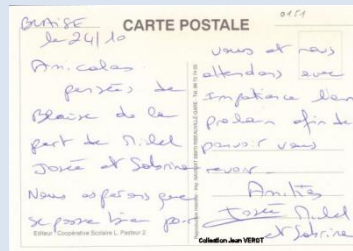 BLAISE
le 24/10
CARTE POSTALE
0151
Amicales
pensées de
Blaise de la
part de Michel
Josée et Sabrina
Nous espérons que
se passe bien pour
vous et nous
attendons avec
impatience l'an
prochain afin de
pouvoir vous
revoir.
Amitiés
Josée Michel
et Sabrina
Editeur : Coopérative Scolaire L. Pasteur 2
Collection Jean VERDT